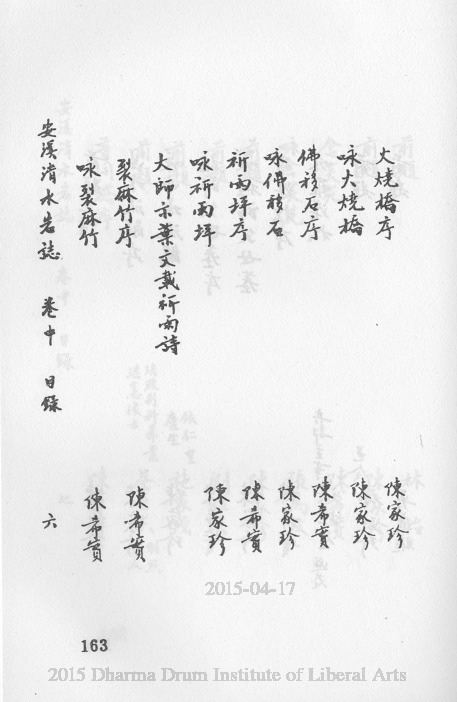 火燒橋序 陳家珍
咏火燒橋 陳家珍
佛移石序 陳希實
咏佛移石 陳家珍
祈雨坪序 陳希實
咏祈雨坪 陳家珍
大師示葉文載祈雨詩
裂麻竹序 陳希實
咏裂麻竹 陳希實
安溪清水岩誌 卷中 目錄 六
2015-04-17
163
2015 Dharma Drum Institute of Liberal Arts